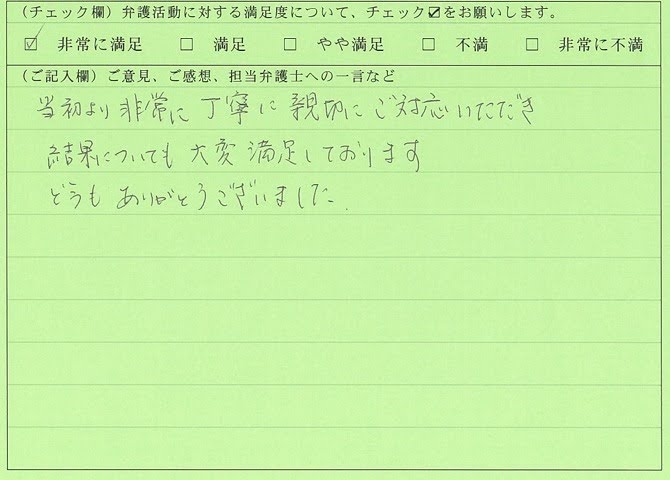 （チェック欄）弁護活動に対する満足度について、チェック☑をお願いします。
☑ 非常に満足 □ 満足 □ やや満足 □ 不満 □ 非常に不満
（ご記入欄）ご意見、ご感想、担当弁護士への一言など
当初より非常に丁寧に親切にご対応いただき
結果についても大変満足しております
どうもありがとうございました.